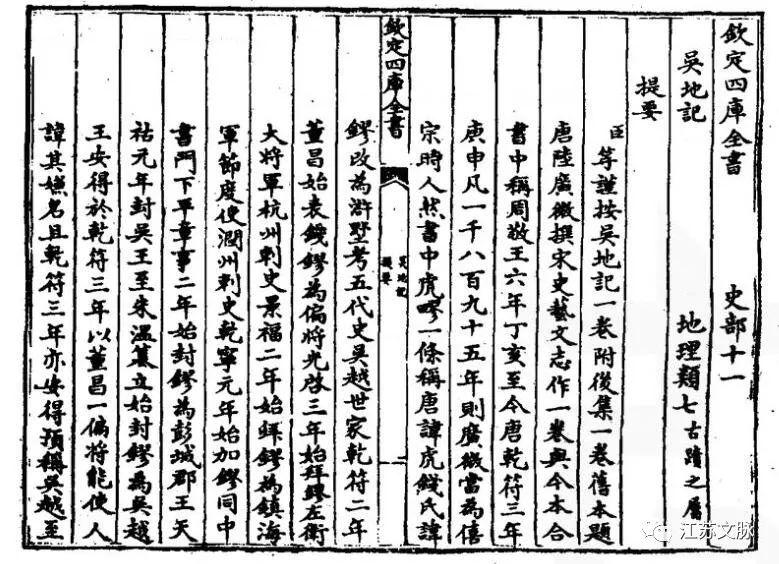 欽定四庫全書 史部十一
吳地記 地理類七古蹟之屬
提要
臣等謹按吳地記一卷附後集一卷舊本題
唐陸廣微撰宋史藝文志作一卷與今本合
書中稱周敬王六年丁亥至今唐乾符三年
庚申凡一千八百九十五年則廣微當為僖
宗時人然書中虎疁一條稱唐諱虎錢氏諱
欽定四庫全書
吳地記
提要
鏐改為滸墅考五代史吳越世家乾符二年
董昌始表錢鏐為偏將光啓三年始拜鏐左衛
大將軍杭州刺史景福二年始拜鏐為鎮海
軍節度使潤州刺史乾寧元年始加鏐同中
書門下平章事二年始封鏐為彭城郡王天
祐元年封吳王至朱溫簒立始封鏐為吳越
王安得於乾符三年以董昌一偏將能使人
諱其嫌名且乾符三年亦安得預稱吳越至
江苏文脉